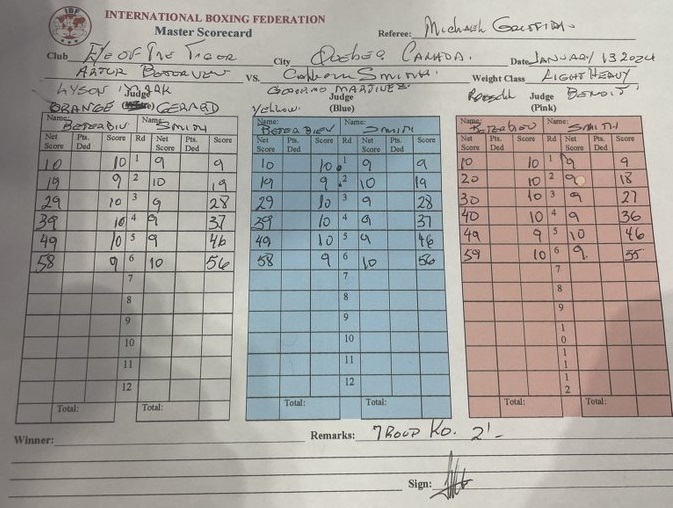 IBF
INTERNATIONAL BOXING FEDERATION
Master Scorecard
Referee: Michael Griffin
Club EYE OF THE TIGER City QUEBEC CANADA. Date JANUARY 13 2024
ARTUR BETERVIEV VS. Callum SMITH. Weight Class LIGHT HEAVY
Judge GERARD
ORANGE
Yellow. Judge (Blue)
Judge (Pink) BENOIT
Name: BETERBIV Name: SMITH Name: BETERBIEV Name: SMITH Name: BETERBIEV Name: SMITH
Net Score Pts. Ded Score Rd Net Score Pts. Ded Score Net Score Pts. Ded Score Rd Net Score Pts. Ded Score Net Score Pts. Ded Score Rd Net Score Pts. Ded Score
10 10 1 9 9 10 10 1 9 9 10 10 1 9 9
19 9 2 10 19 19 9 2 10 19 20 10 2 9 18
29 10 3 9 28 29 10 3 9 28 30 10 3 9 27
39 10 4 9 37 39 10 4 9 37 40 10 4 9 36
49 10 5 9 46 49 10 5 9 46 49 9 5 10 46
58 9 6 10 56 58 9 6 10 56 59 10 6 9 55
7 7 7
8 8 8
9 9 9
10 10 10
11 11 11
12 12 12
Total: Total: Total: Total: Total: Total:
Winner: Remarks: 7 ROUD KO. 2'-
Sign: